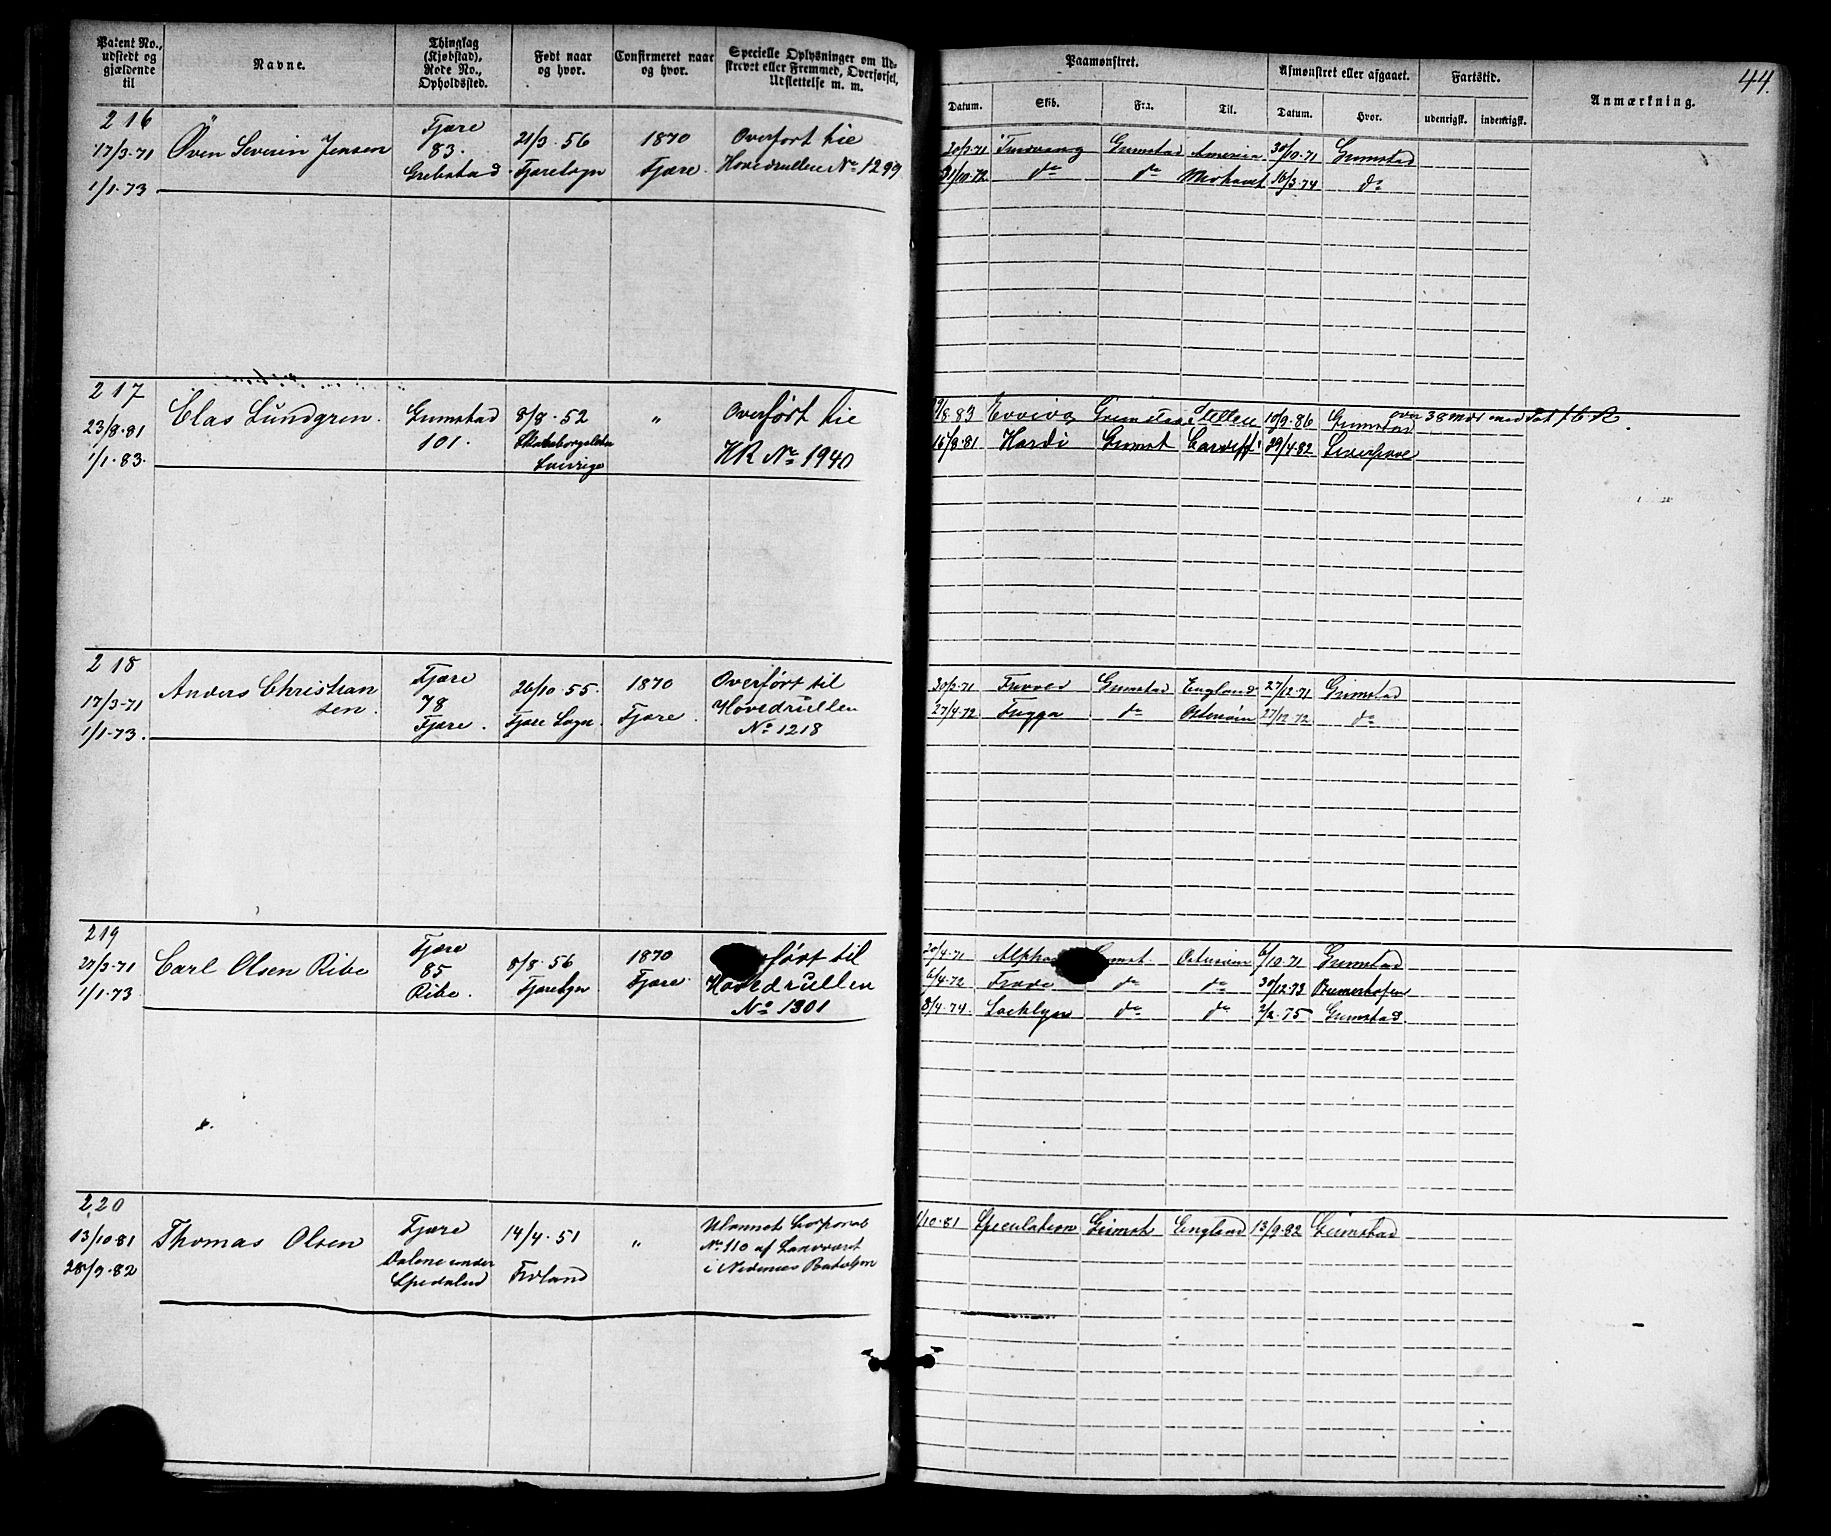 44.
Patent No., udstedt og gjældende til
Navne.
Thinglag (Kjøbstad), Rode No., Opholdssted.
Født naar og hvor.
Confirmeret naar og hvor.
Specielle Oplysninger om Udskrevet eller Fremmed, Overførsel, Udslettelse m. m.
Paamønstret.
Datum. Skib. Fra. Til.
Afmønstret eller afgaaet.
Datum. Hvor.
Fartstid.
udenrigsk. indenrigsk.
Anmærkning.
216
17/3-71
1/1-73
Øven Severin Jensen
Fjære
83.
Grebstad
21/3-56
Fjæresogn
1870
Fjære.
Overført til
Hovedrullen No 1299
20/3-71 Grimstad America 30/10-71 Grimstad
31/10-72 do do 16/3-74 do
217
23/8-81
1/1-83.
Clas Lundgren.
Grimstad
101.
8/8-52
Sverrige
"
Overført til
HR No 1940
9/8 83 Evviva Grimstad 10/9-86 Grimstad over 38 mdr med
15/8-81 Hardi Grimst Cardiff 29/4-82 Liverpool
218
17/3-71
1/1-73.
Anders Christian
sen.
Fjære
78
Fjære.
26/10-55.
Fjære Sogn.
1870
Fjære.
Overført til
Hovedrullen
No 1218
30/3-71 Grimstad England 27/12-71 Grimstad
27/4-72 Frigga do Østersøen 27/12-72 do
219
27/3-71
1/1-73
Carl Olsen Ribe
Fjære
85
Ribe.
8/8-56
Fjæresogn
1870
Fjære.
ført til
Hovedrullen
No 1301
20/4-71 Østersøen 6/10-71 Grimstad
6/4-72 do do 30/12-73 Bremerhafen
8/4-74. do do 2/2-75 Grimstad.
220
13/10-81
28/9-82
Thomas Olsen
Fjære
14/4-51
Froland
"
No 110 af Landværet
i Nedenes Bataljon
1/10-81 Speculation Grimst England 13/9-82 Grimstad